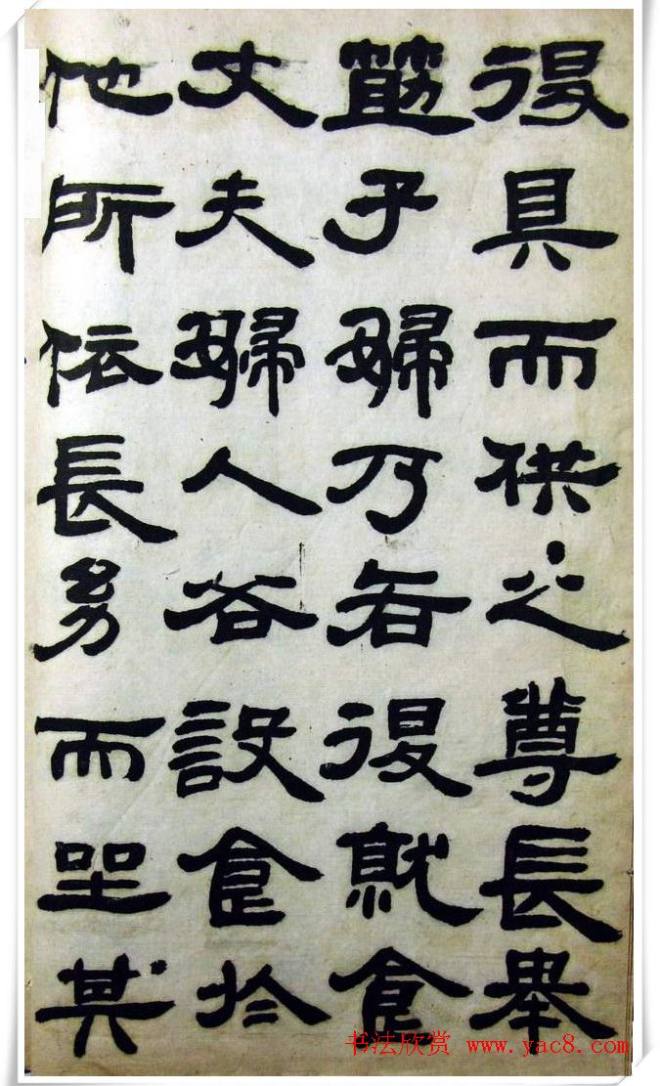 後具而供之尊長舉
筯子婦乃各後就食
丈夫婦人各設食於
他所依長幼而坐其
书法欣赏 www.yac8.com